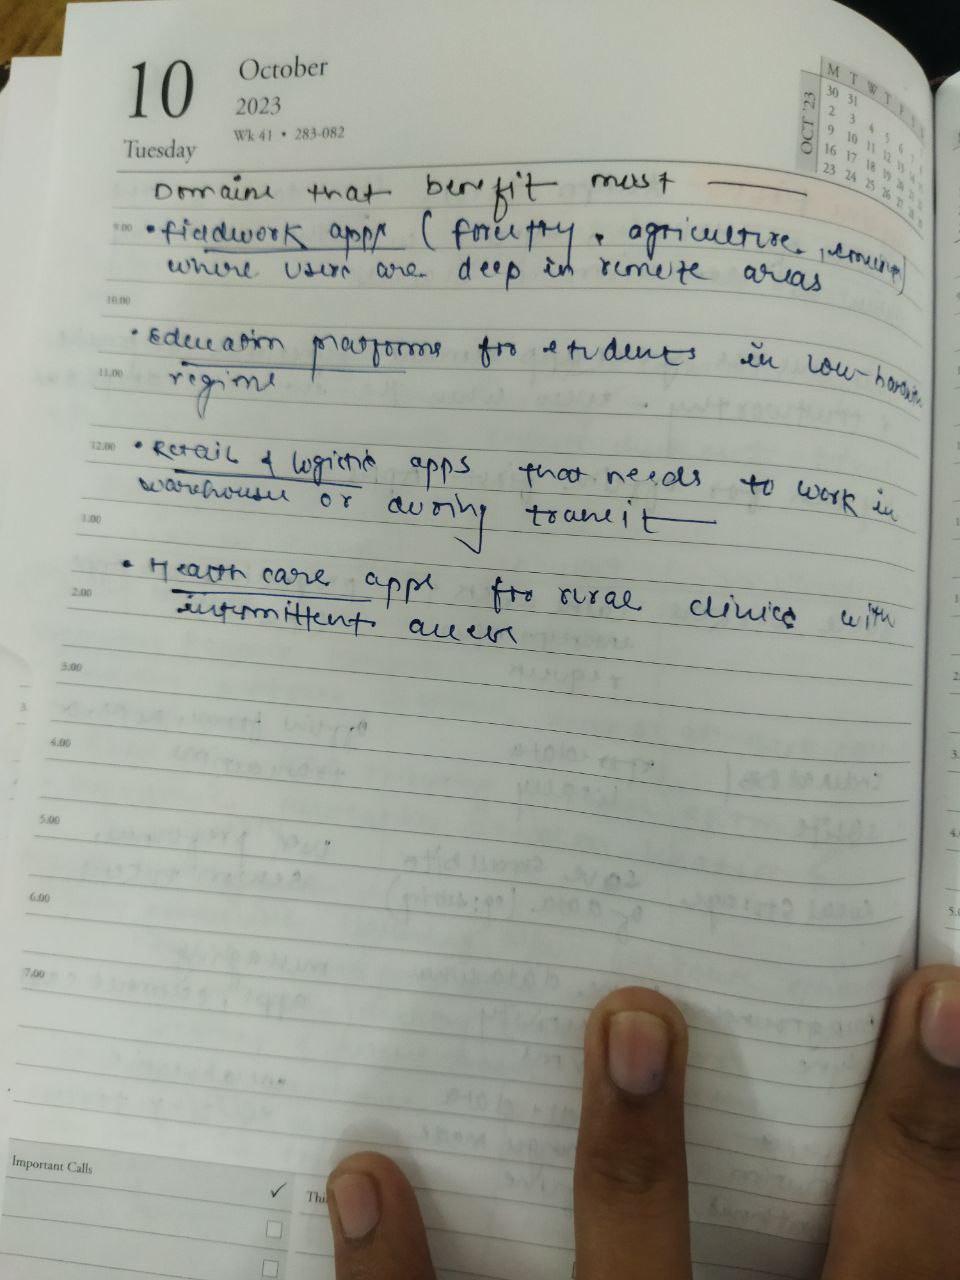 10
October
2023
Wk 41 • 283-082
Tuesday
OCT '23
M T W T F S S
30 31
2 3 4 5 6 7
9 10 11 12 13 14
16 17 18 19 20 21
23 24 25 26 27 28
Domains that benefit most
9.00
• fieldwork apps (forestry, agriculture,
where users are deep in remote areas
10.00
• Education platforms for students in low-
11.00
regime
12.00
• Retail & logistic apps that needs to work in
warehouse or during transit
1.00
• Health care apps for rural clinics with
2.00
intermittent access
3.00
4.00
5.00
6.00
7.00
Important Calls